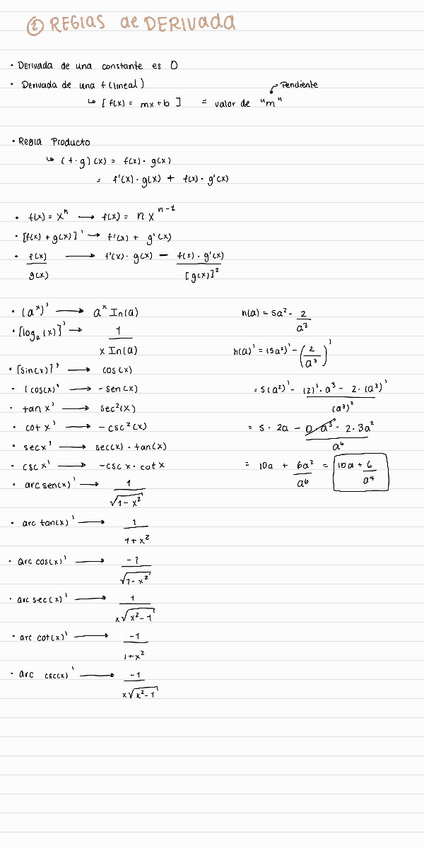 ② REGlAS de DERIVADA
• Derivada de una constante es 0
• Derivada de una f(lineal)
Pendiente
↳ [f(x) = mx+b] = valor de "m"
• Regla Producto
↳ (f·g)(x) = f(x) · g(x)
= f'(x) · g(x) + f(x) · g'(x)
• f(x) = x^n → f(x) = n x^(n-1)
• [f(x) + g(x)]' → f'(x) + g'(x)
• f(x) / g(x) → f'(x) · g(x) − f(x) · g'(x) / [g(x)]²
• (a^x)' → a^x ln(a)
• [log₂(x)]' → 1 / x ln(a)
• [sin(x)]' → cos(x)
• (cos(x)' → -sen(x)
• tan x' → sec²(x)
• cot x' → -csc²(x)
• sec x' → sec(x) · tan(x)
• csc x' → -csc x · cot x
• arc sen(x)' → 1 / √(1-x²)
• arc tan(x)' → 1 / 1+x²
• arc cos(x)' → -1 / √(1-x²)
• arc sec(x)' → 1 / x√(x²-1)
• arc cot(x)' → -1 / 1+x²
• arc csc(x)' → -1 / x√(x²-1)
h(a) = 5a² - 2 / a³
h(a)' = (5a²)' - (2 / a³)'
= 5(a²)' - (2)' · a³ - 2 · (a³)' / (a³)²
= 5 · 2a - 0 · a³ - 2 · 3a² / a⁶
= 10a + 6a² / a⁶ = 10a + 6 / a⁴